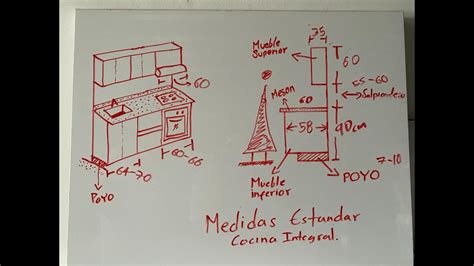 60
64-70
60-66
POYO
35
Mueble
Superior
60
55-60
Salpradero
Meson
60
58
90cm
7-10
POYO
Mueble
inferior
Medidas Estandar
Cocina Integral.